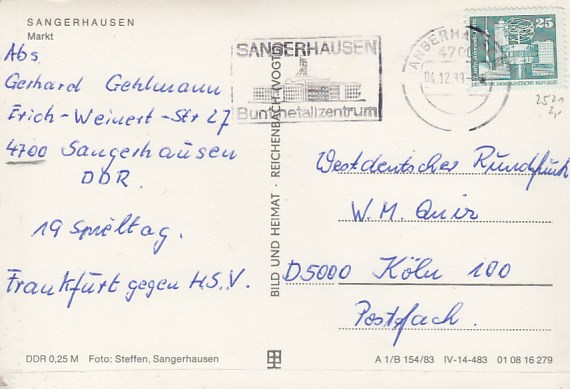 SANGERHAUSEN
Markt
Abs
Gerhard Gehlmann
Erich-Weinert-Str 27
4700 Sangerhausen
DDR.
19 Spieltag.
Frankfurt gegen H.S.V.
DDR 0,25 M Foto: Steffen, Sangerhausen
BILD UND HEIMAT · REICHENBACH (VOGTL)
SANGERHAUSEN
Buntmetallzentrum
SANGERHAUSEN
4700
04.12.89
25
2521
Westdeutscher Rundfunk
W. M. Quiz
D5000 Köln 100
Postfach.
A 1/B 154/83 IV-14-483 01 08 16 279